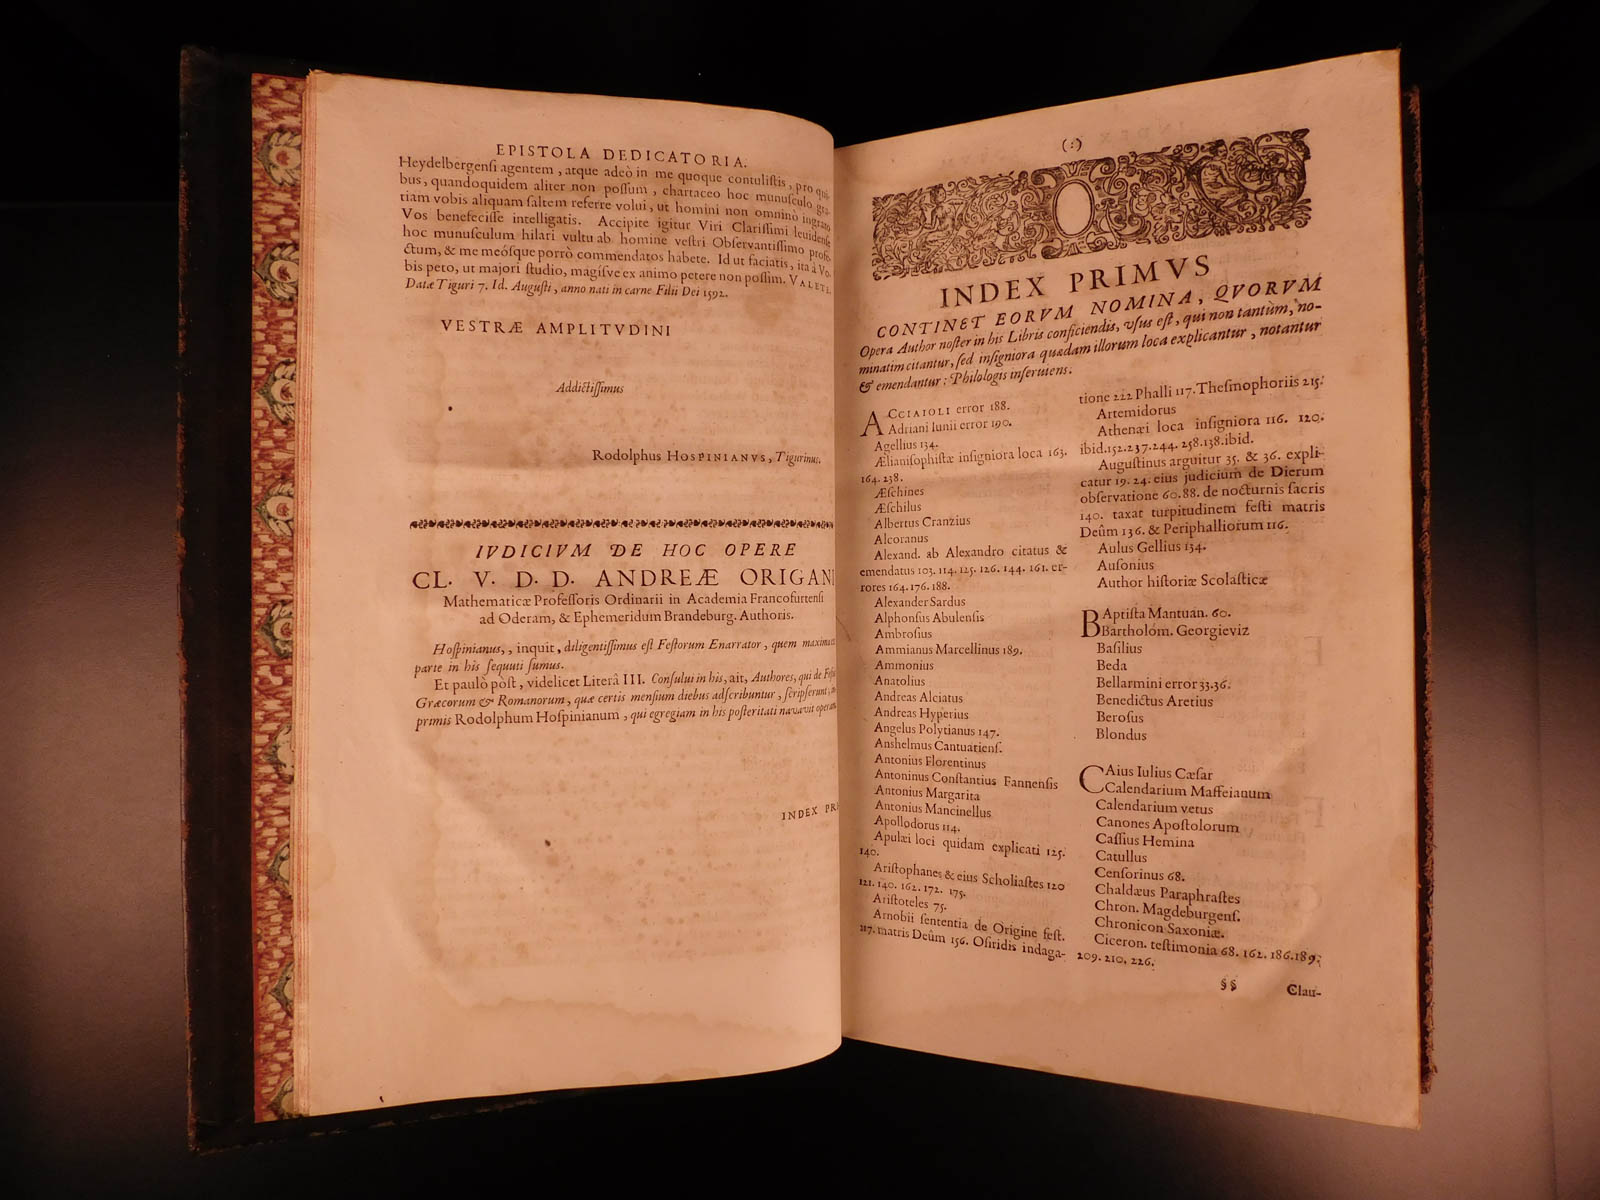 EPISTOLA DEDICATORIA.
Heydelbergensi agentem, atque adeò in me quoque contulistis, pro qui-
bus, quandoquidem aliter non possum, chartaceo hoc munusculo gra-
tiam vobis aliquam saltem referre volui, ut homini non omninò ingrato
Vos benefecisse intelligatis. Accipite igitur Viri Clarissimi leuidense
hoc munusculum hilari vultu ab homine vestri Observantissimo profe-
ctum, & me meósque porrò commendatos habete. Id ut faciatis, ita à Vo-
bis peto, ut majori studio, magisve ex animo petere non possim. VALETE.
Datæ Tiguri 7. Id. Augusti, anno nati in carne Filii Dei 1592.
VESTRÆ AMPLITVDINI
Addictissimus
Rodolphus HOSPINIANVS, Tigurinus.
IVDICIVM DE HOC OPERE
CL. V. D. D. ANDREÆ ORIGANI
Mathematicæ Professoris Ordinarii in Academia Francofurtensi
ad Oderam, & Ephemeridum Brandeburg. Authoris.
Hospinianus,, inquit, diligentissimus est Festorum Enarrator, quem maxima ex
parte in his sequuti sumus.
Et paulò post, videlicet Literâ III. Consului in his, ait, Authores, qui de Festis
Græcorum & Romanorum, quæ certis mensium diebus adscribuntur, scripserunt,
primis Rodolphum Hospinianum, qui egregiam in his posteritati navavit operam
INDEX PRI
(:)
INDEX PRIMVS
CONTINET EORVM NOMINA, QVORVM
Opera Author noster in his Libris conficiendis, vsus est, qui non tantùm, no-
minatim citantur, sed insigniora quædam illorum loca explicantur, notantur
& emendantur: Philologis inservieus.
ACCIAIOLI error 188.
Adriani Iunii error 190.
Agellius 134.
Ælianisophistæ insigniora loca 163.
164. 238.
Æschines
Æschilus
Albertus Cranzius
Alcoranus
Alexand. ab Alexandro citatus &
emendatus 103. 114. 125. 126. 144. 161. er-
rores 164. 176. 188.
Alexander Sardus
Alphonsus Abulensis
Ambrosius
Ammianus Marcellinus 189.
Ammonius
Anatolius
Andreas Alciatus
Andreas Hyperius
Angelus Polytianus 147.
Anshelmus Cantuatiens.
Antonius Florentinus
Antoninus Constantius Fannensis
Antonius Margarita
Antonius Mancinellus
Apollodorus 114.
Apulæi loci quidam explicati 125.
140.
Aristophanes & eius Scholiastes 120
121. 140. 162. 172. 175.
Aristoteles 75.
Arnobii sententia de Origine fest.
117. matris Deûm 156. Osiridis indaga-
tione 222 Phalli 117. Thesmophoriis 215.
Artemidorus
Athenæi loca insigniora 116. 120.
ibid. 152. 237. 244. 258. 138. ibid.
Augustinus arguitur 35. & 36. expli-
catur 19. 24. eius judicium de Dierum
observatione 60. 88. de nocturnis sacris
140. taxat turpitudinem festi matris
Deûm 136. & Periphalliorum 116.
Aulus Gellius 134.
Ausonius
Author historiæ Scolasticæ
BAptista Mantuan. 60.
Bartholom. Georgieviz
Basilius
Beda
Bellarmini error 33. 36.
Benedictus Aretius
Berosus
Blondus
CAius Iulius Cæsar
Calendarium Maffeianum
Calendarium vetus
Canones Apostolorum
Cassius Hemina
Catullus
Censorinus 68.
Chaldæus Paraphrastes
Chron. Magdeburgens.
Chronicon Saxoniæ.
Ciceron. testimonia 68. 162. 186. 189.
209. 210. 226.
§§
Clau-